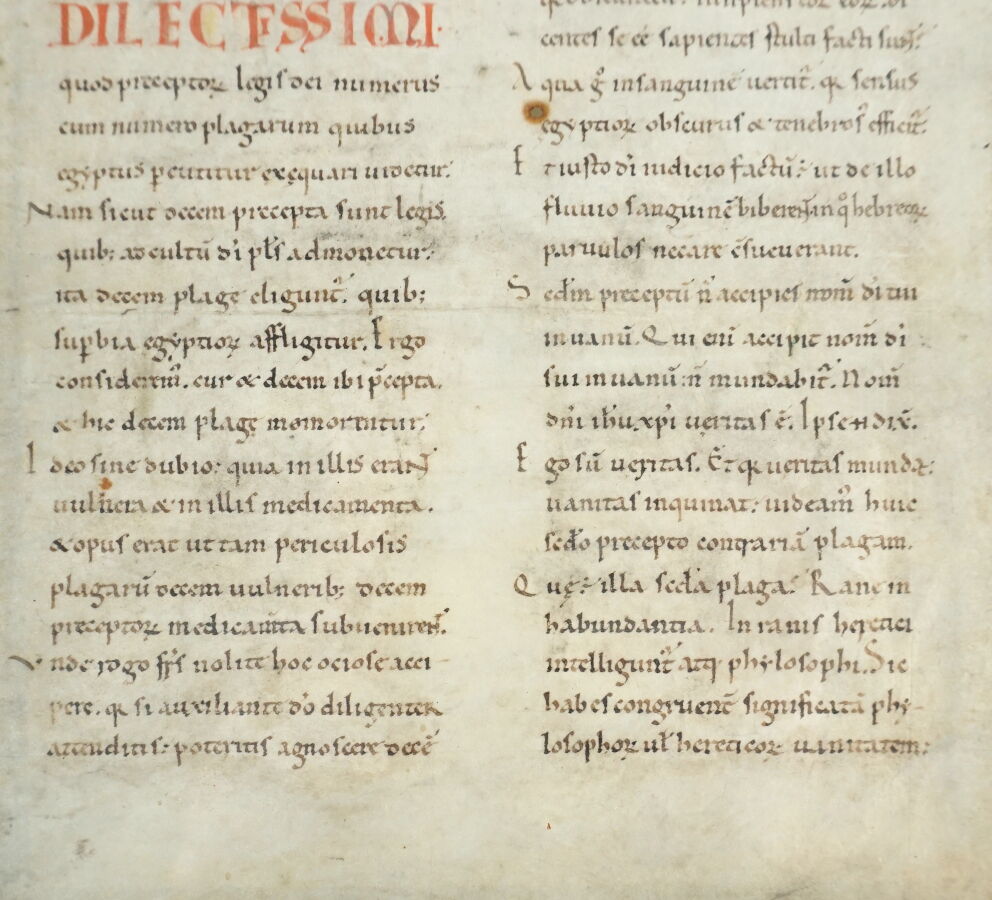 DILECTISSIMI
quod preceptoꝝ legis dei numerus
cum numero plagarum quibus
egyptus ꝑcutitur exęquari uidetur.
Nam sicut decem precepta sunt legis
quib; ad cultū dī pl̄s admonetur.
ita decem plagę eligunt᷒. quib;
suꝑbia egyptioꝝ affligitur. Ergo
consideremꝰ. cur & decem ibi p̄cepta.
& hic decem plagę memorentur.
Ideo sine dubio; quia in illis erant
uulnera & in illis medicamenta.
& opus erat ut tam periculosis
plagarū decem uulnerib; decem
preceptoꝝ medicam̄ta subuenirent.
Vnde rogo fr̄s nolite hoc ociose acci
pere. qꝛ si auxiliante dō diligenter
attenditis; poteritis agnoscere decē
centes se eē sapientes stulti facti sunt.
Aqua gͦ in sanguinē uertit᷒. qꝛ sensus
egyptioꝝ obscurus & tenebrosꝰ efficit᷒.
Et iusto dī iudicio factū; ut de illo
fluuio sanguinē biberent in qͦ hebreoꝝ
paruulos necare c̄sueuerant.
Secd̄m preceptū n̄ accipies nom̄ dī tui
in uanū. Qui eni᷒ accipit nom̄ dī
sui in uanū; n̄ mundabit᷒. Nom̄
dn̄i ih̄u xp̄i ueritas ē. Ipse .n. dix̄.
Ego sū ueritas. Et qꝛ ueritas mundat;
uanitas inquinat; uideamꝰ huic
sēdo precepto contrariā plagam.
Quę ÷ illa sēda plaga? Ranę in
habundantia. In ranis heretici
intelligunt᷒ atq; phylosophi. Sic
habes congruent̄ significatā phy
losophoꝝ ul̄ hereticoꝝ uanitatem;